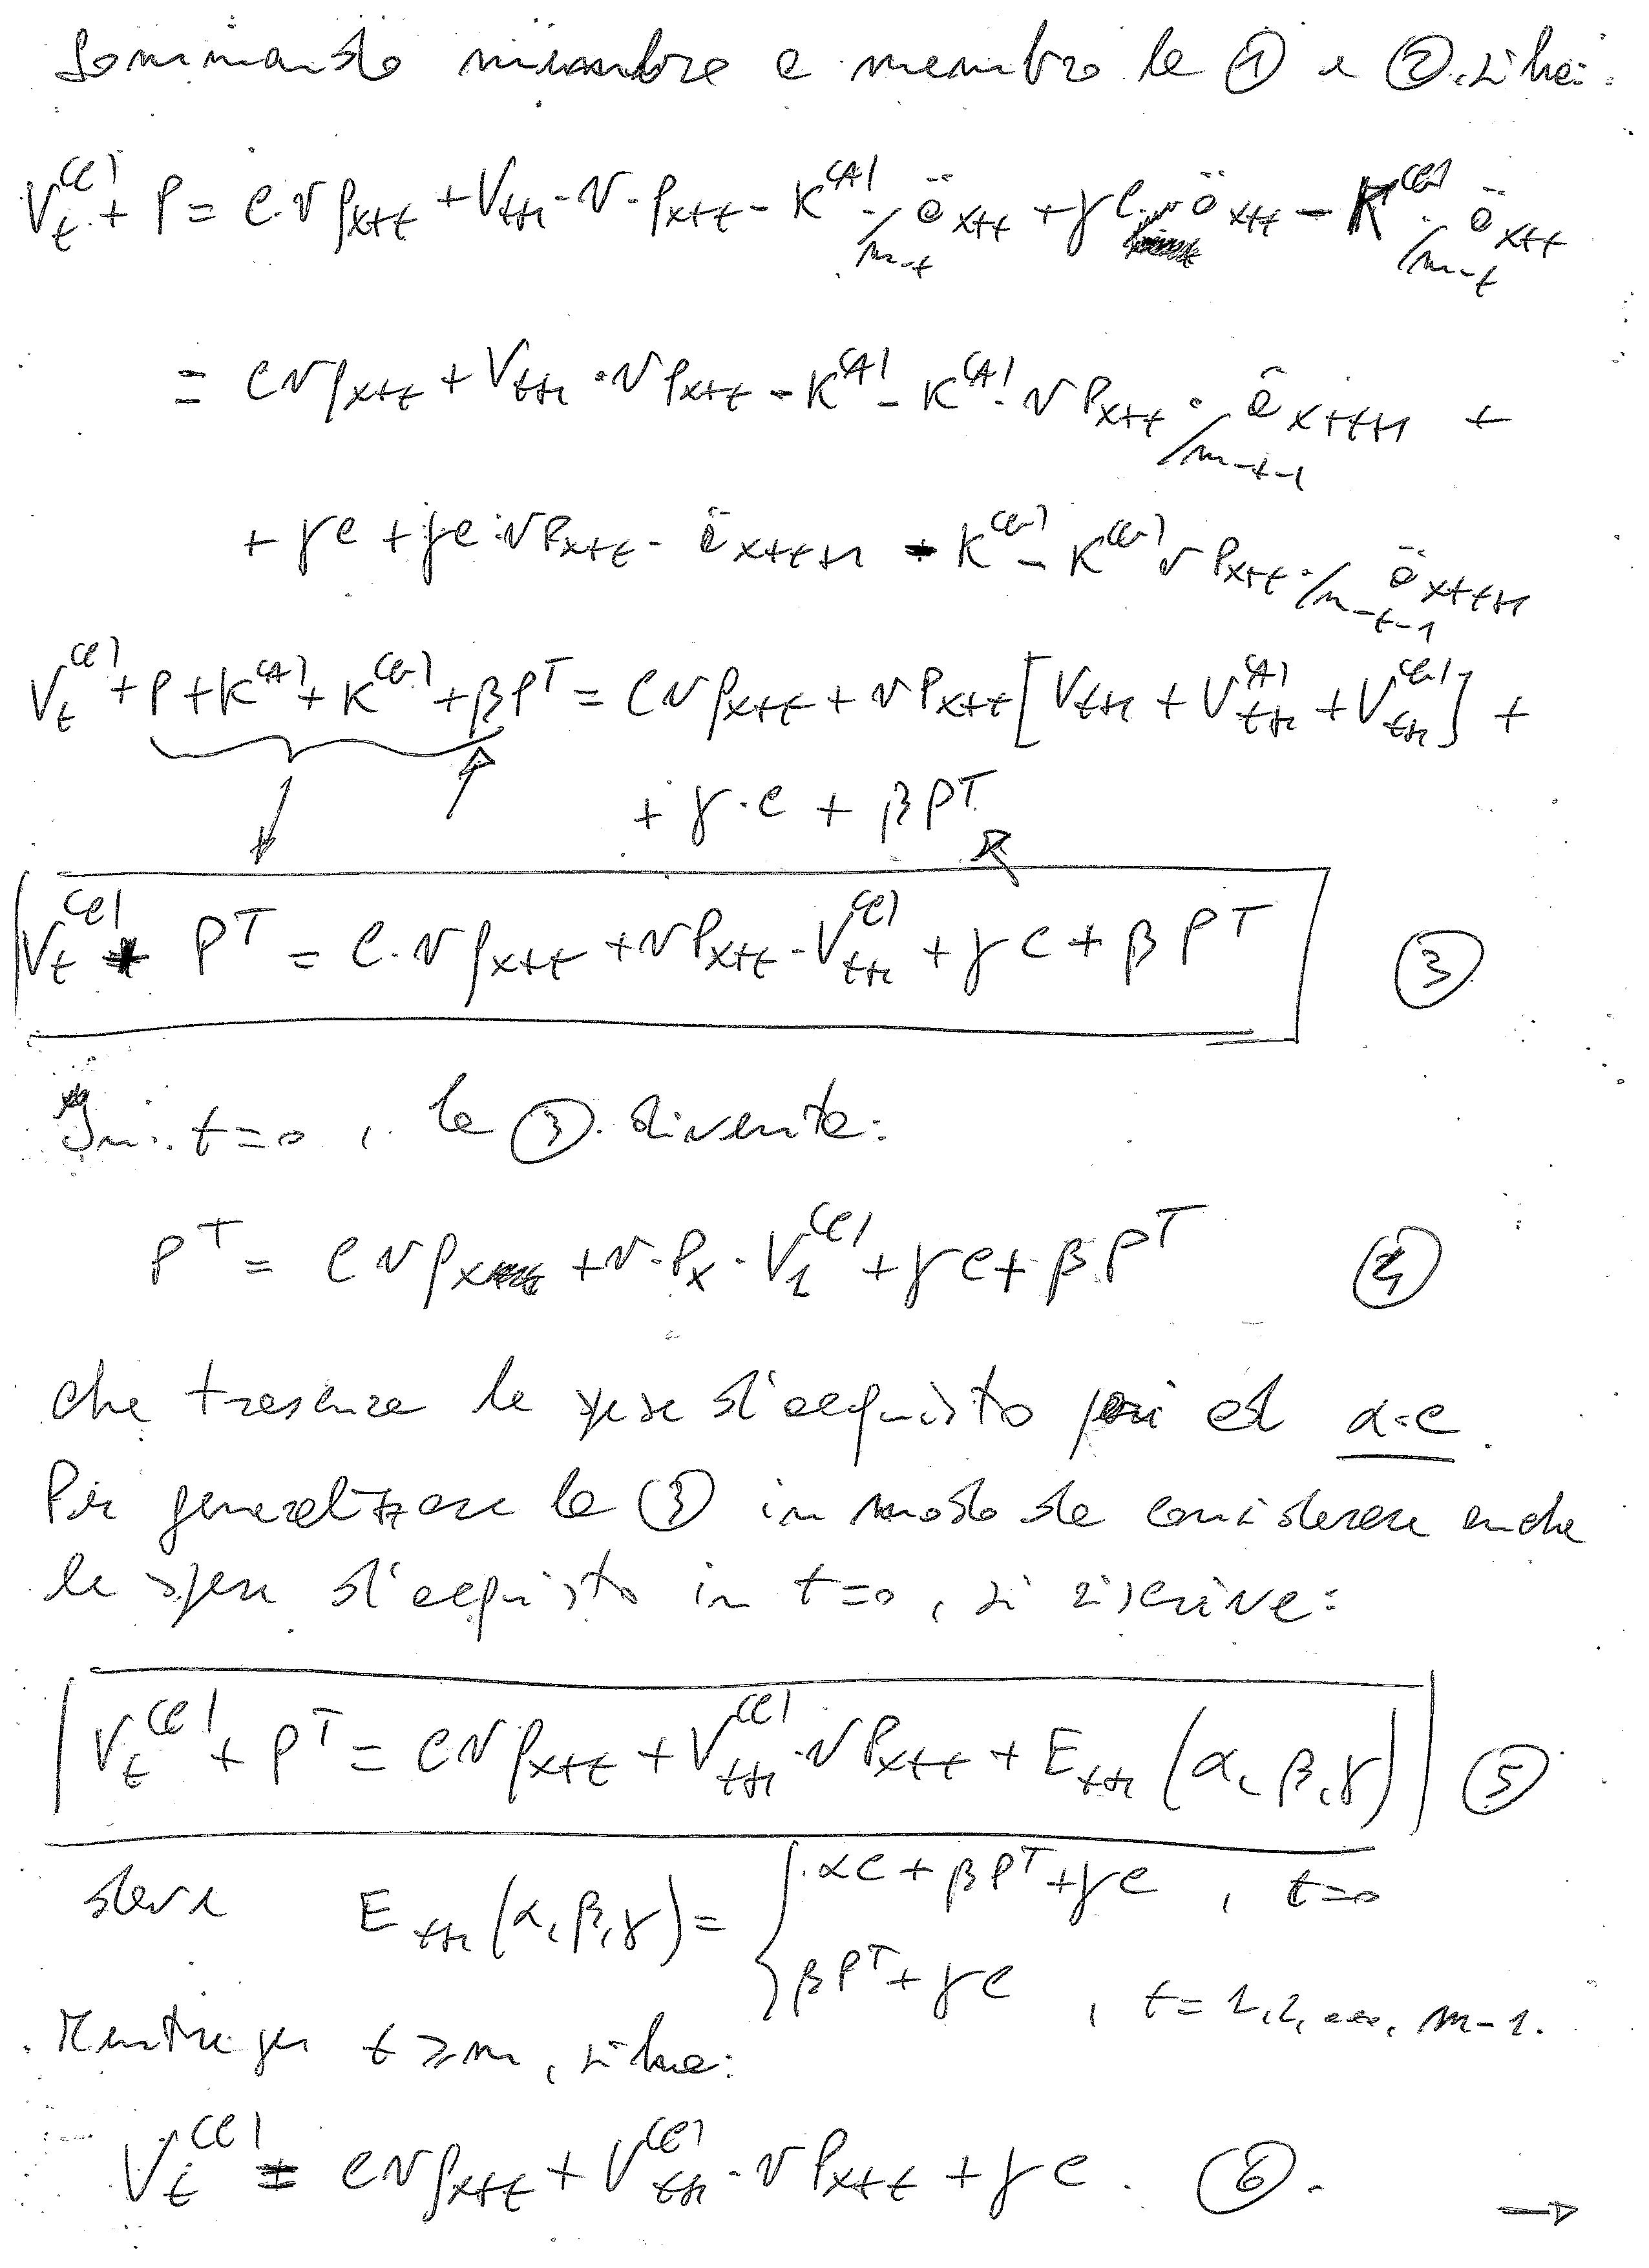 Sommando membro a membro le ① e ② si ha:
V_t^(C) + P = C·v q_{x+t} + V_{t+1}·v·p_{x+t} - K^(A)·_{/m-t}ä_{x+t} + γC·ä_{x+t} - K^(G)·_{/m-t}ä_{x+t}
= C v q_{x+t} + V_{t+1}·v p_{x+t} - K^(A) - K^(A)·v p_{x+t}·_{/m-t-1}ä_{x+t+1} +
+ γC + γC·v p_{x+t}·ä_{x+t+1} - K^(G) - K^(G) v p_{x+t}·_{/m-t-1}ä_{x+t+1}
V_t^(C) + P + K^(A) + K^(G) + βP^T = C v q_{x+t} + v p_{x+t} [V_{t+1} + V_{t+1}^(A) + V_{t+1}^(G)] +
+ γ·C + βP^T
V_t^(C) + P^T = C·v q_{x+t} + v p_{x+t}·V_{t+1}^(C) + γC + βP^T ③
In t=0, la ③ diventa:
P^T = C v q_x + v·p_x·V_1^(C) + γC + βP^T ④
che trascura le spese d'acquisto pari ad α·C.
Per generalizzare la ③ in modo da considerare anche
le spese d'acquisto in t=0, si riscrive:
V_t^(C) + P^T = C v q_{x+t} + V_{t+1}^(C)·v p_{x+t} + E_{t+1}(α, β, γ) ⑤
dove E_{t+1}(α, β, γ) = { αC + βP^T + γC , t=0
βP^T + γC , t=1,2,...,m-1.
Mentre per t≥m, si ha:
V_t^(C) = C v q_{x+t} + V_{t+1}^(C)·v p_{x+t} + γC. ⑥.
→